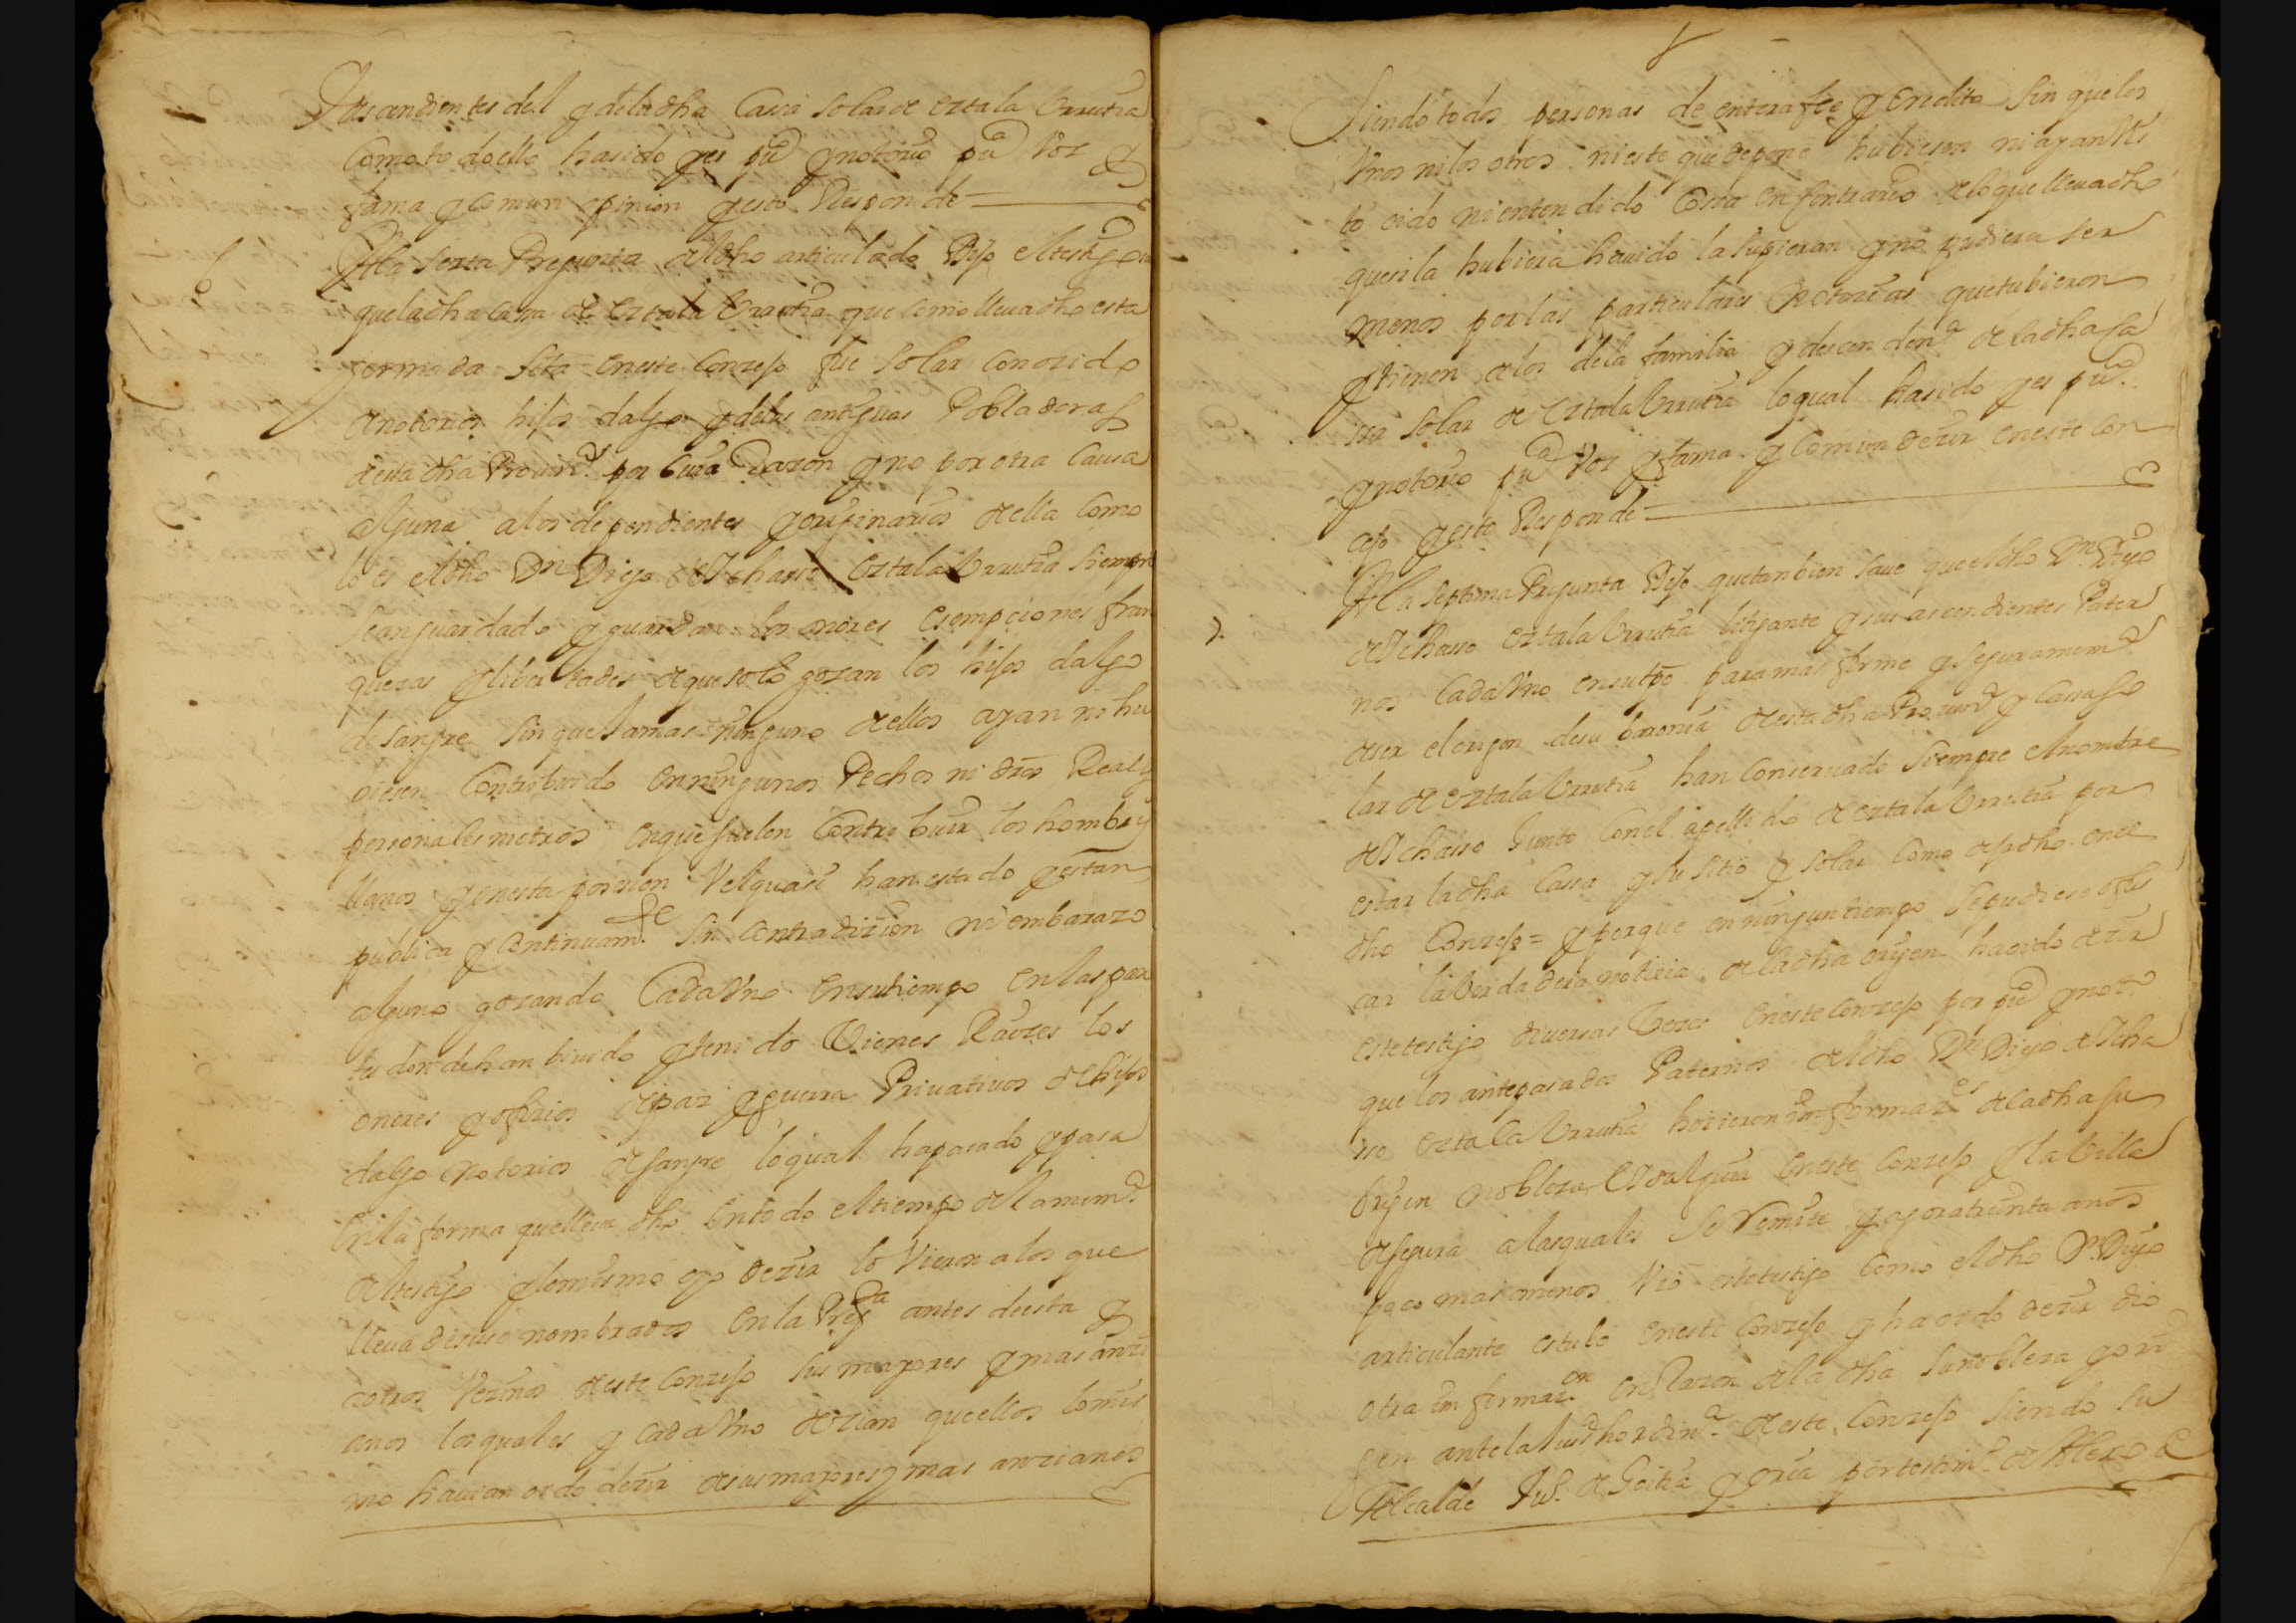 descendientes del y de la dha Cassa solar de Oztala Urrutia
Como todo ello ha sido y es pu.co y notorio pu.ca Voz y
fama y Comun opinion y esto Responde
6 A la Sexta Pregunta del dho articulado Dijo el testigo
que la dha cassa de Oztala Urrutia que como lleua dho esta
sita en este Conzejo fue Solar Conozido
de notorios hijos dalgo y de las antiguas Pobladoras
desta dha Prouin.a por Cuia Razon y no por otra Causa
alguna a los dependientes y originarios de ella Como
lo es el dho Dn Diego de Ichasso Oztala Urrutia Siempre
se an guardado y guardan los onores esempciones fran
quezas y liuertades de que solo gozan los hijos dalgo
de sangre sin que Jamas ninguno de ellos ayan ni hu
biesen Contribuido en ningunos Pechos ni dros Reales
personales ni otros en que suelen Contribuir los hombres
llanos y en esta posesion Vel quasi han estado y estan
publica y Continuam.te Sin Contradizion ni embarazo
alguno gozando Cada Vno en su tiempo en las par
tes donde han biuido y tenido Vienes Raizes los
onores y ofizios de paz y guerra Priuatiuos de hijos
dalgo notorios de sangre lo qual ha pasado y pasa
en la forma que lleua dho en todo el tiempo de la mem.a
del testigo y lo mismo oyo dezir lo Vieron a los que
lleua de suso nombrados en la Preg.ta antes desta y
a otros Vezinos de este Conzejo sus mayores y mas anzi
anos los quales y Cada Vno dezian que ellos lo mis
mo hauian oido dezir a sus mayores y mas anzianos
Siendo todos personas de entera fee y Credito Sin que los
Vnos ni los otros ni este que depone hubiesen ni ayan Vis
to oido ni entendido Cossa en Contrario de lo que lleua dho
que si la hubiera hauido la supieran y no pudiera ser
menos por las particulares notizias que tubieron
y tienen de los de la familia y descenden.a de la dha Ca
ssa solar de Oztala Urrutia lo qual ha sido y es pu.co
y notorio pu.ca Voz y fama y Comun dezir en este Con
cejo y esto Responde
7. A la septima Pregunta Dijo que tanbien saue que el dho Dn Diego
de Ichasso Oztala Urrutia litigante y sus ascendientes Pater
nos Cada Vno en su tpo para mas firme y seguramen.te
de ser el origen de su baronia de esta dha Prouin.a y Cassa so
lar de Oztala Urrutia han Conseruado Siempre el nombre
de Ichasso Junto Con el apellido de Oztala Urrutia por
estar la dha Cassa y su sitio y solar Como deja dho en el
dho Conzejo = y porque en ningun tiempo se pudiese ofus
car la Verdadera notizia de la dha origen ha oido dezir
este testigo diuersas Vezes en este Conzejo por pu.co y not.o
que los antepasados Paternos del dho Dn Diego de Icha
sso Oztala Urrutia hizieron informaz.es de la dha su
origen nobleza hidalguia en este Conzejo y la Villa
de Segura a las quales se Remite y agora treinta anos
poco mas o menos Vio este testigo Como el dho Dn Diego
articulante estubo en este Conzejo y ha oido dezir dio
otra informaz.on en Razon de la dha su nobleza y ori
gen ante la Just.a hordin.a de este Conzejo siendo su
Alcalde Ju.o de Goitia y oria por testim.o de